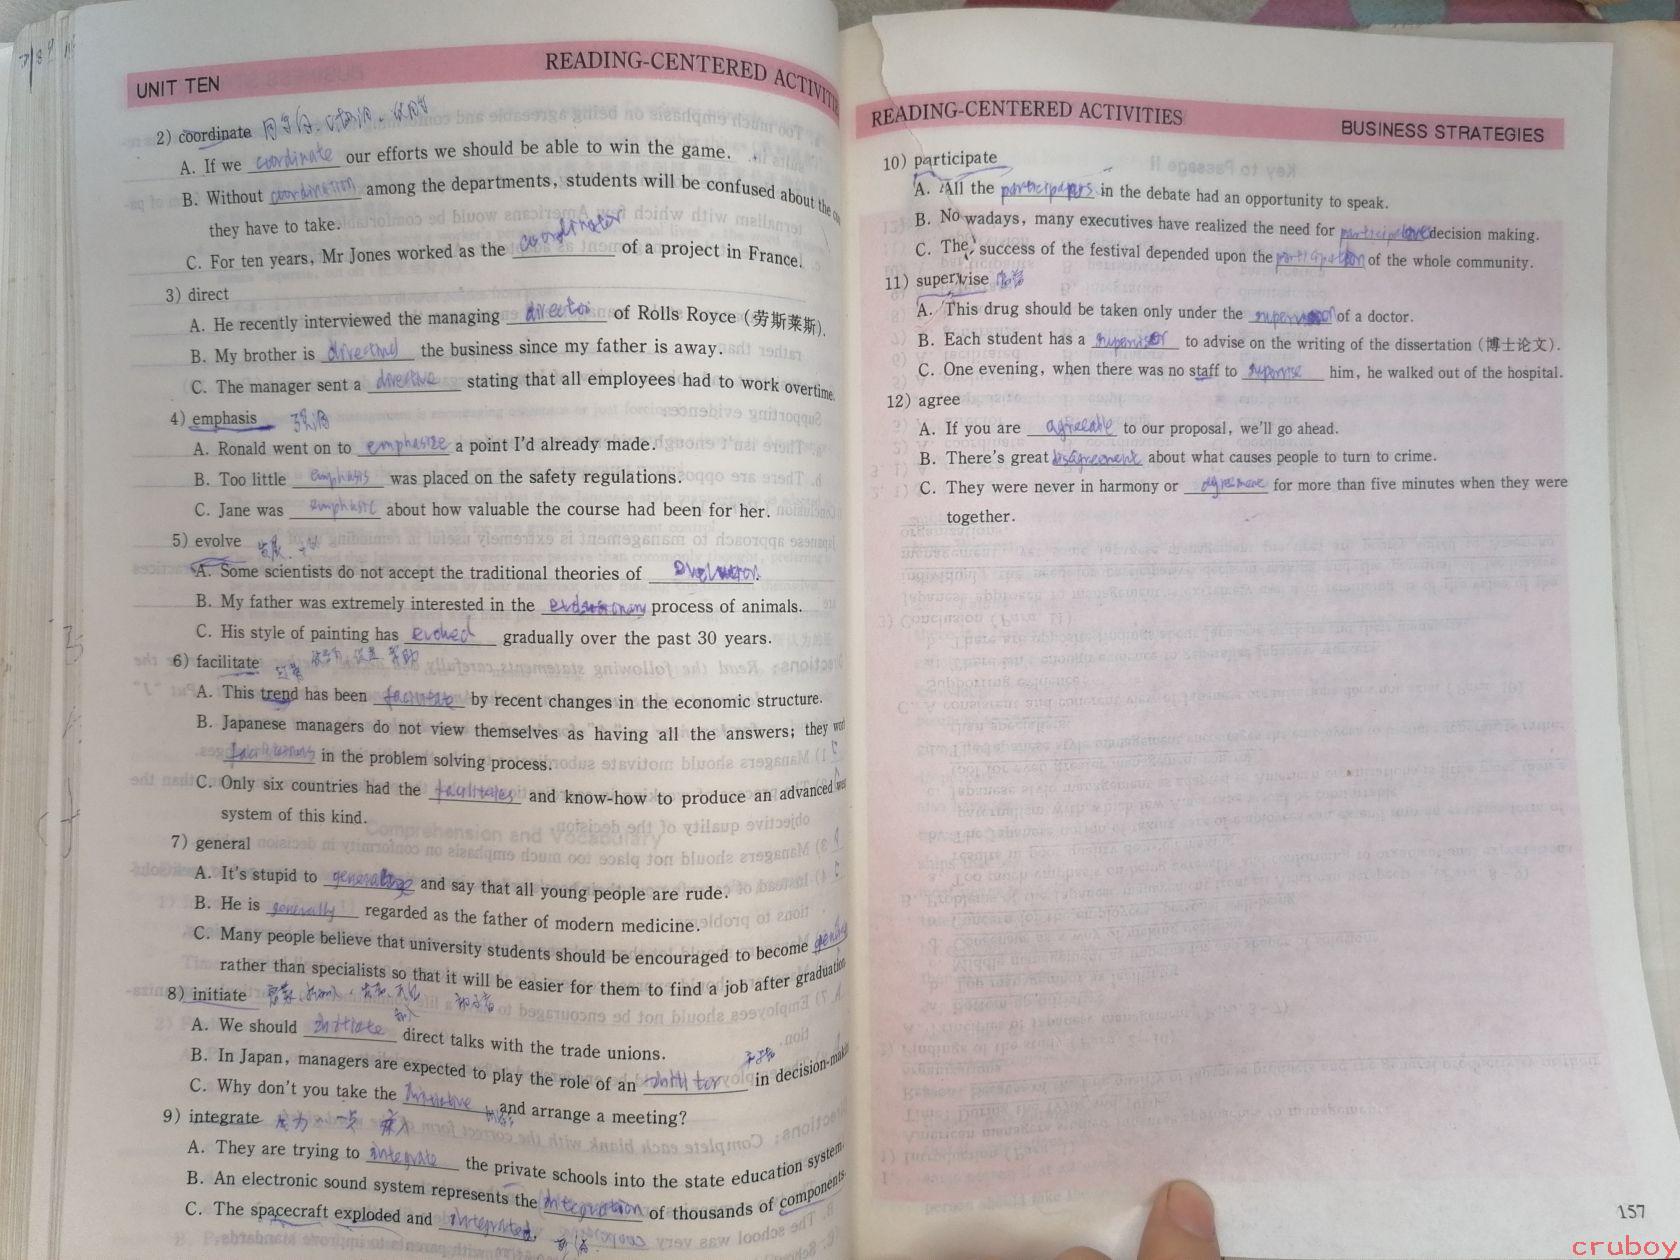 UNIT TEN
READING-CENTERED ACTIVITIES
2) coordinate
A. If we coordinate our efforts we should be able to win the game.
B. Without coordination among the departments, students will be confused about the
they have to take.
C. For ten years, Mr Jones worked as the coordinator of a project in France.
3) direct
A. He recently interviewed the managing director of Rolls Royce (劳斯莱斯).
B. My brother is the business since my father is away.
C. The manager sent a directive stating that all employees had to work overtime.
4) emphasis 强调
A. Ronald went on to emphasize a point I'd already made.
B. Too little emphasis was placed on the safety regulations.
C. Jane was emphatic about how valuable the course had been for her.
5) evolve
A. Some scientists do not accept the traditional theories of evolution.
B. My father was extremely interested in the process of animals.
C. His style of painting has evolved gradually over the past 30 years.
6) facilitate
A. This trend has been facilitate by recent changes in the economic structure.
B. Japanese managers do not view themselves as having all the answers; they
in the problem solving process.
C. Only six countries had the facilitates and know-how to produce an advanced
system of this kind.
7) general
A. It's stupid to generalize and say that all young people are rude.
B. He is generally regarded as the father of modern medicine.
C. Many people believe that university students should be encouraged to become
rather than specialists so that it will be easier for them to find a job after graduation
8) initiate
A. We should initiate direct talks with the trade unions.
B. In Japan, managers are expected to play the role of an in decision-making
C. Why don't you take the initiative and arrange a meeting?
9) integrate
A. They are trying to integrate the private schools into the state education system.
B. An electronic sound system represents the integration of thousands of components.
C. The spacecraft exploded and
READING-CENTERED ACTIVITIES
BUSINESS STRATEGIES
10) participate
A. All the participants in the debate had an opportunity to speak.
B. Nowadays, many executives have realized the need for decision making.
C. The success of the festival depended upon the participation of the whole community.
11) supervise
A. This drug should be taken only under the supervision of a doctor.
B. Each student has a supervisor to advise on the writing of the dissertation (博士论文).
C. One evening, when there was no staff to supervise him, he walked out of the hospital.
12) agree
A. If you are agreeable to our proposal, we'll go ahead.
B. There's great disagreement about what causes people to turn to crime.
C. They were never in harmony or agreement for more than five minutes when they were
together.
157
cruboy